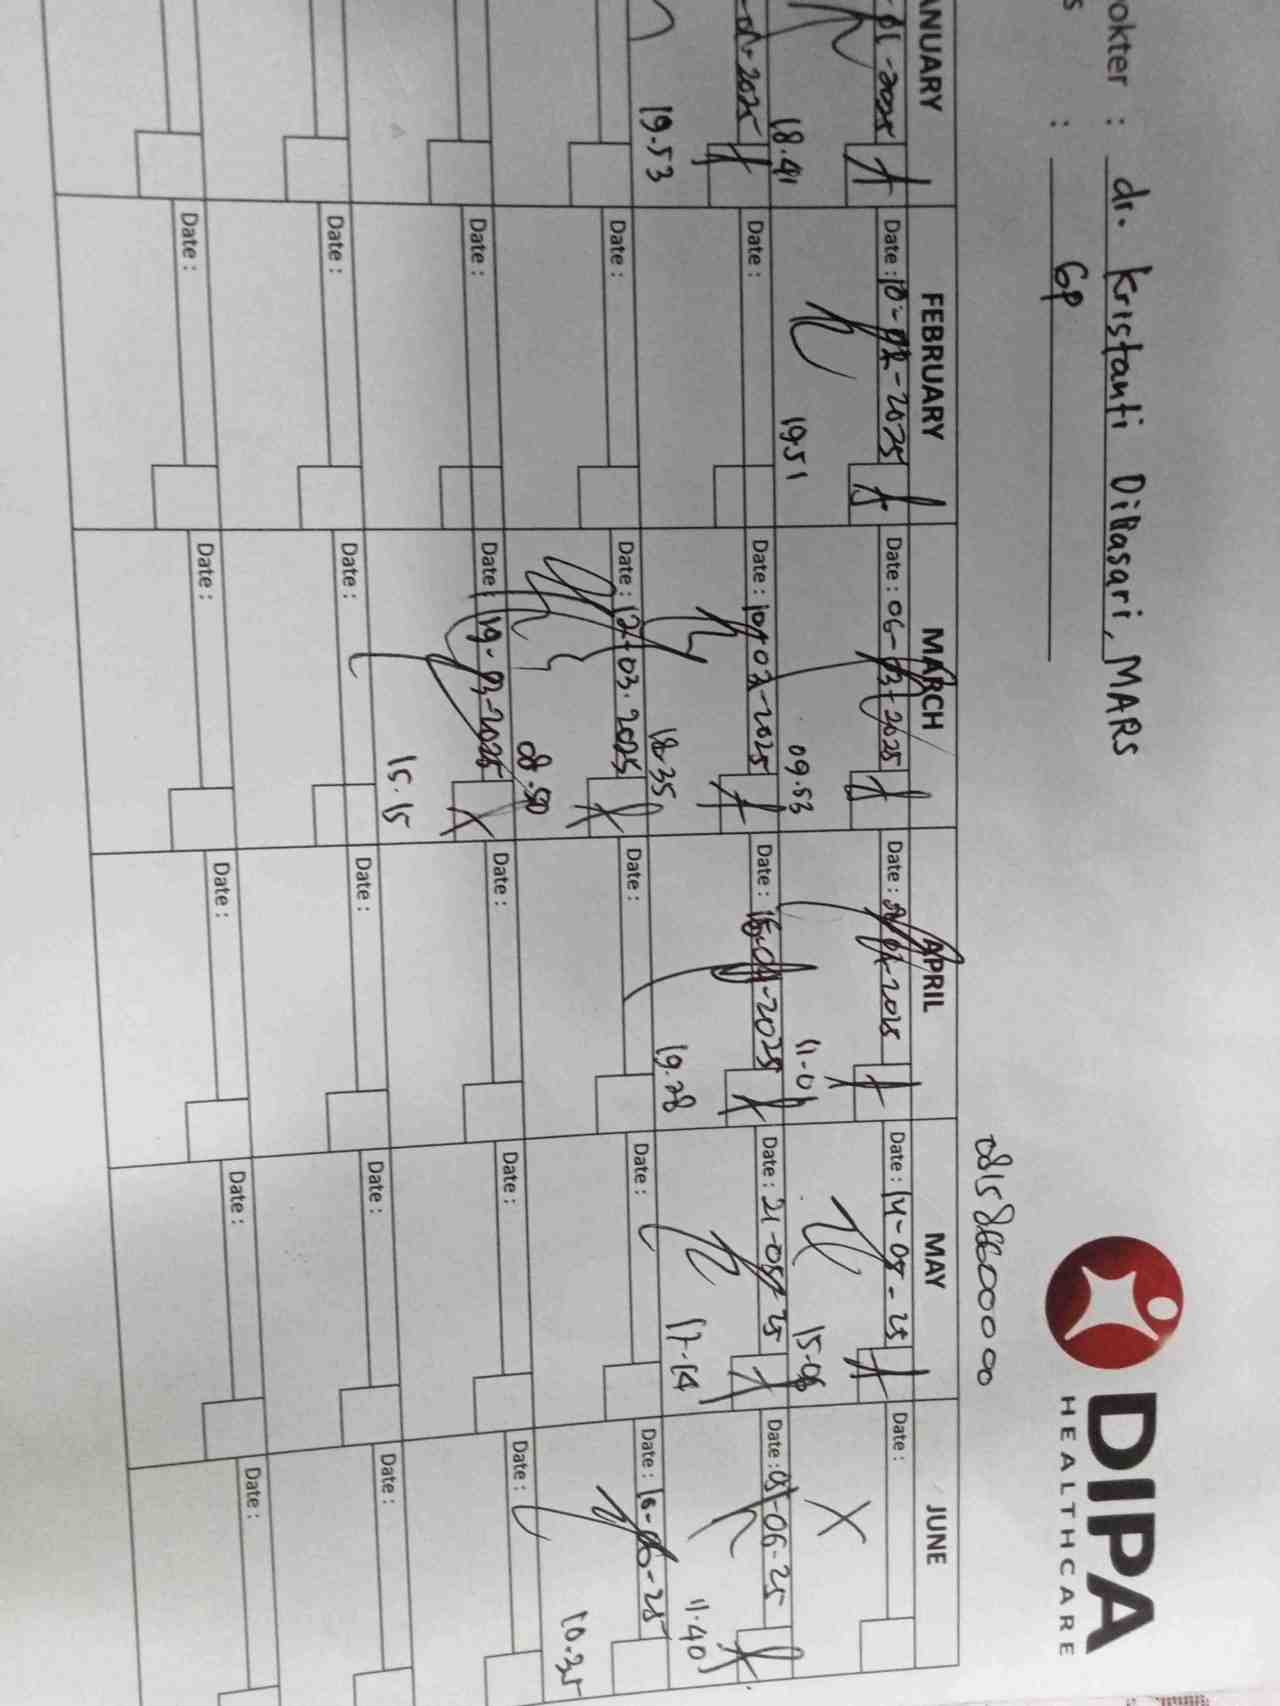 DIPA
HEALTHCARE
okter : dr. Kristanti Dibasari, MARS
s : GP
0815 8660000
ANUARY FEBRUARY MARCH APRIL MAY JUNE
-01-2025 Date : 10-02-2025 Date : 06-03-2025 Date : 04-2025 Date : 14-05-25 Date :
18.41 19.51 09.53 11.01 15.06 X
-01-2025 Date : Date : 10-03-2025 Date : 16-04-2025 Date : 21-05-25 Date : 05-06-25
19.53 18.35 19.28 17.14 11.40
Date : Date : 12-03.2025 Date : Date : Date : 16-06-25
08.50 10.35
Date : Date : 19-03-2025 Date : Date : Date :
15.15
Date : Date : Date : Date : Date :
Date : Date : Date : Date : Date :